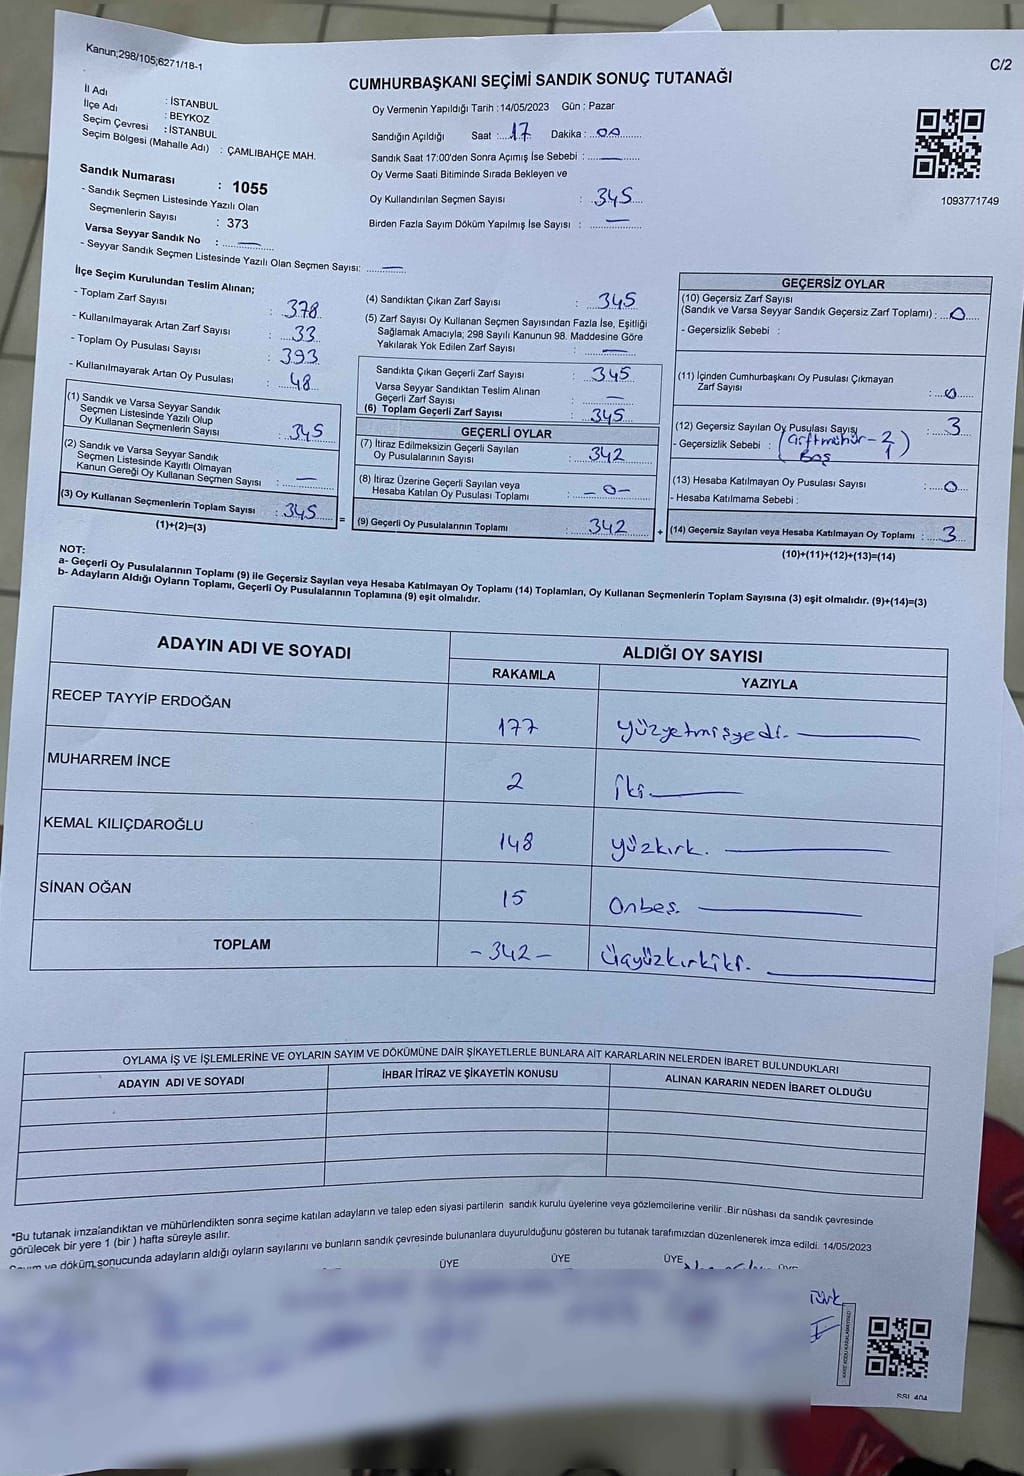 Kanun;298/105;6271/18-1
C/2
CUMHURBAŞKANI SEÇİMİ SANDIK SONUÇ TUTANAĞI
İl Adı : İSTANBUL
İlçe Adı : BEYKOZ
Seçim Çevresi : İSTANBUL
Seçim Bölgesi (Mahalle Adı) : ÇAMLIBAHÇE MAH.
Sandık Numarası : 1055
- Sandık Seçmen Listesinde Yazılı Olan
Seçmenlerin Sayısı : 373
Varsa Seyyar Sandık No :
- Seyyar Sandık Seçmen Listesinde Yazılı Olan Seçmen Sayısı:
Oy Vermenin Yapıldığı Tarih :14/05/2023 Gün : Pazar
Sandığın Açıldığı Saat : 17 Dakika : 00
Sandık Saat 17:00'den Sonra Açımış İse Sebebi :
Oy Verme Saati Bitiminde Sırada Bekleyen ve
Oy Kullandırılan Seçmen Sayısı : 345
Birden Fazla Sayım Döküm Yapılmış İse Sayısı :
1093771749
İlçe Seçim Kurulundan Teslim Alınan;
- Toplam Zarf Sayısı : 378
- Kullanılmayarak Artan Zarf Sayısı : 33
- Toplam Oy Pusulası Sayısı : 393
- Kullanılmayarak Artan Oy Pusulası : 48
(1) Sandık ve Varsa Seyyar Sandık
Seçmen Listesinde Yazılı Olup
Oy Kullanan Seçmenlerin Sayısı : 345
(2) Sandık ve Varsa Seyyar Sandık
Seçmen Listesinde Kayıtlı Olmayan
Kanun Gereği Oy Kullanan Seçmen Sayısı :
(3) Oy Kullanan Seçmenlerin Toplam Sayısı : 345
(1)+(2)=(3)
=
(4) Sandıktan Çıkan Zarf Sayısı : 345
(5) Zarf Sayısı Oy Kullanan Seçmen Sayısından Fazla İse, Eşitliği
Sağlamak Amacıyla; 298 Sayılı Kanunun 98. Maddesine Göre
Yakılarak Yok Edilen Zarf Sayısı :
Sandıkta Çıkan Geçerli Zarf Sayısı : 345
Varsa Seyyar Sandıktan Teslim Alınan
Geçerli Zarf Sayısı :
(6) Toplam Geçerli Zarf Sayısı : 345
GEÇERLİ OYLAR
(7) İtiraz Edilmeksizin Geçerli Sayılan
Oy Pusulalarının Sayısı : 342
(8) İtiraz Üzerine Geçerli Sayılan veya
Hesaba Katılan Oy Pusulası Toplamı : -0-
(9) Geçerli Oy Pusulalarının Toplamı : 342
+
GEÇERSİZ OYLAR
(10) Geçersiz Zarf Sayısı
(Sandık ve Varsa Seyyar Sandık Geçersiz Zarf Toplamı) : 0
- Geçersizlik Sebebi :
(11) İçinden Cumhurbaşkanı Oy Pusulası Çıkmayan
Zarf Sayısı : 0
(12) Geçersiz Sayılan Oy Pusulası Sayısı : 3
- Geçersizlik Sebebi : (Çiftmühür - 2
Boş 1)
(13) Hesaba Katılmayan Oy Pusulası Sayısı : 0
- Hesaba Katılmama Sebebi :
(14) Geçersiz Sayılan veya Hesaba Katılmayan Oy Toplamı : 3
(10)+(11)+(12)+(13)=(14)
NOT:
a- Geçerli Oy Pusulalarının Toplamı (9) ile Geçersiz Sayılan veya Hesaba Katılmayan Oy Toplamı (14) Toplamları, Oy Kullanan Seçmenlerin Toplam Sayısına (3) eşit olmalıdır. (9)+(14)=(3)
b- Adayların Aldığı Oyların Toplamı, Geçerli Oy Pusulalarının Toplamına (9) eşit olmalıdır.
ADAYIN ADI VE SOYADI
ALDIĞI OY SAYISI
RAKAMLA YAZIYLA
RECEP TAYYİP ERDOĞAN 177 yüzyetmişyedi.
MUHARREM İNCE 2 İki.
KEMAL KILIÇDAROĞLU 148 yüzkırk.
SİNAN OĞAN 15 Onbeş.
TOPLAM -342- Üçyüzkırkiki.
OYLAMA İŞ VE İŞLEMLERİNE VE OYLARIN SAYIM VE DÖKÜMÜNE DAİR ŞİKAYETLERLE BUNLARA AİT KARARLARIN NELERDEN İBARET BULUNDUKLARI
ADAYIN ADI VE SOYADI İHBAR İTİRAZ VE ŞİKAYETİN KONUSU ALINAN KARARIN NEDEN İBARET OLDUĞU
*Bu tutanak imzalandıktan ve mühürlendikten sonra seçime katılan adayların ve talep eden siyasi partilerin sandık kurulu üyelerine veya gözlemcilerine verilir .Bir nüshası da sandık çevresinde
görülecek bir yere 1 (bir ) hafta süreyle asılır.
Sayım ve döküm sonucunda adayların aldığı oyların sayılarını ve bunların sandık çevresinde bulunanlara duyurulduğunu gösteren bu tutanak tarafımızdan düzenlenerek imza edildi. 14/05/2023
ÜYE ÜYE ÜYE ÜYE
Türk
SSI 404